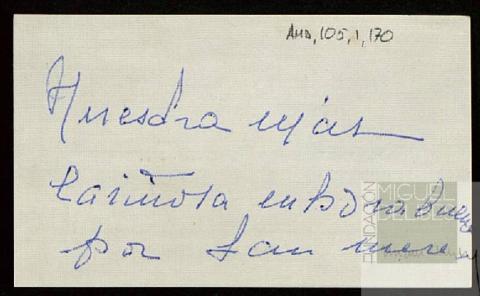 AMD, 105, 1, 170
Nuestra más
cariñosa enhorabuena
por tan mere
FUNDACIÓN
MIGUEL
DELIBES